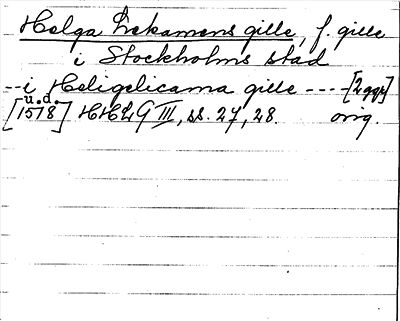 Helga Lekamens gille, f. gille
i Stockholms stad
--i Heligelicama gille ----[2 ggr]
u.d.
[1518] HHLG III, ss. 27, 28. orig.